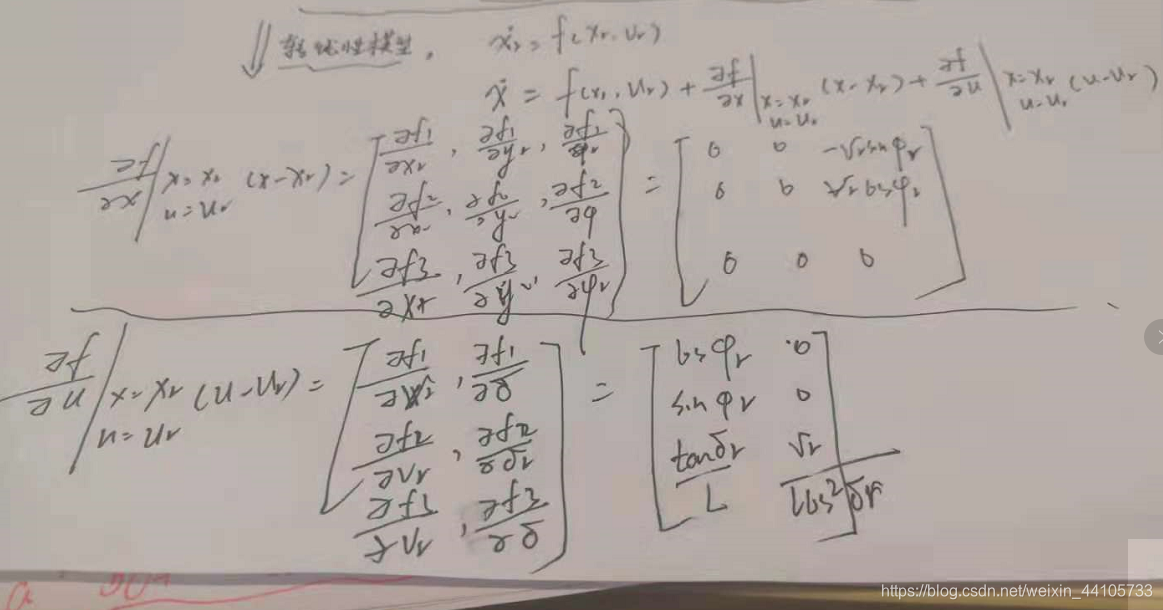 ⇓ 转线性模型. ẋr = f(xr, ur)
ẋ = f(xr, ur) + ∂f/∂x |x=xr u=ur (x-xr) + ∂f/∂u |x=xr u=ur (u-ur)
∂f/∂x |x=xr u=ur (x-xr) = [∂f1/∂x, ∂f1/∂y, ∂f1/∂φ
∂f2/∂x, ∂f2/∂y, ∂f2/∂φ
∂f3/∂x, ∂f3/∂y, ∂f3/∂φ] = [0 0 -vr sinφr
0 0 vr cosφr
0 0 0]
∂f/∂u |x=xr u=ur (u-ur) = [∂f1/∂v, ∂f1/∂δ
∂f2/∂v, ∂f2/∂δ
∂f3/∂v, ∂f3/∂δ] = [cosφr 0
sinφr 0
tanδr/L vr/(Lcos²δr)]
https://blog.csdn.net/weixin_44105733